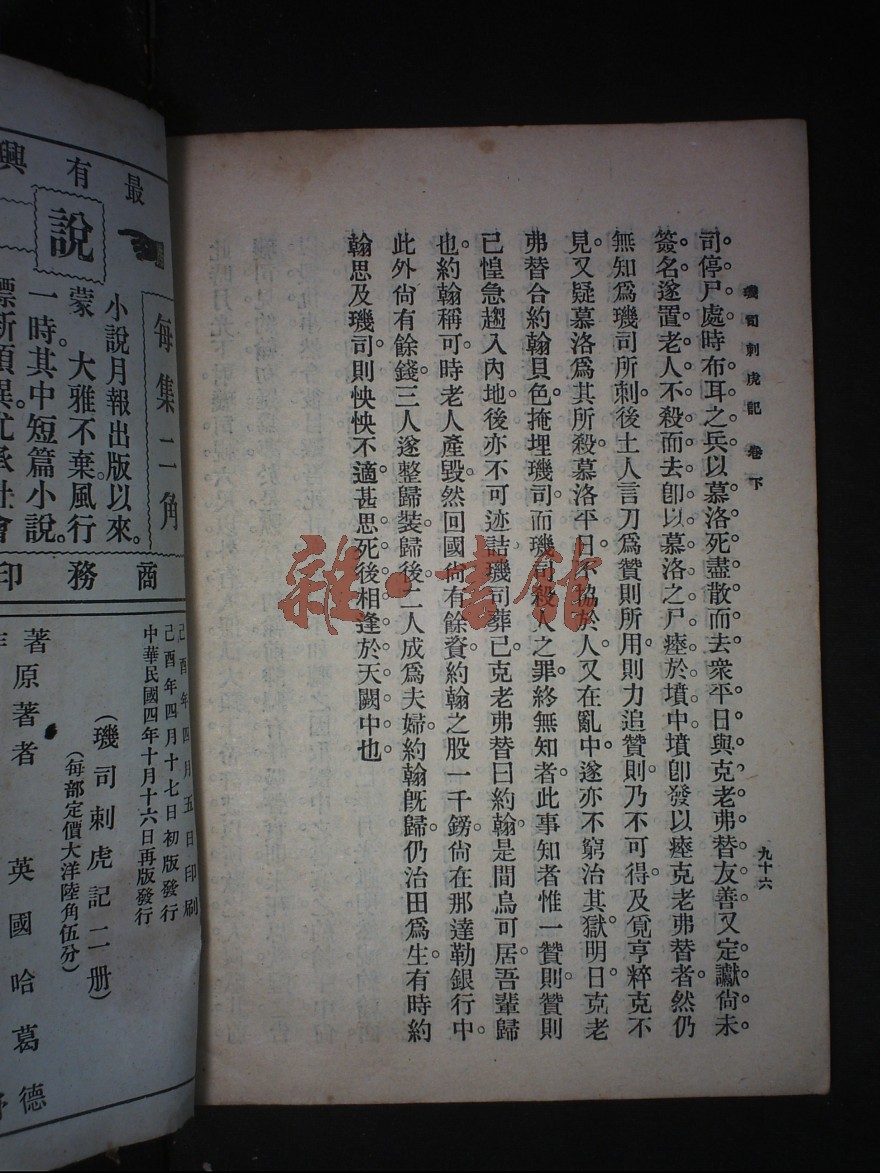 璣司刺虎記 卷下
九十六
司。停尸處時布耳之兵。以慕洛死。盡散而去。衆平日與克老弗替友善。又定讞尙未
簽名。遂置老人不殺而去。卽以慕洛之尸。瘞於墳中。墳卽發以瘞克老弗替者。然仍
無知爲璣司所刺。後土人言刀爲贊則所用。則力追贊則。乃不可得。及覓亨粹克不
見。又疑慕洛爲其所殺。慕洛平日不協於人。又在亂中。遂亦不窮治其獄。明日克老
弗替合約翰貝色。掩埋璣司。而璣司殺人之罪。終無知者。此事知者惟一贊則。贊則
已惶急趨入內地。後亦不可迹詰。璣司葬已。克老弗替曰。約翰。是間烏可居。吾輩歸
也。約翰稱可。時老人產毀。然回國尙有餘資。約翰之股一千鎊。尙在那達勒銀行中。
此外尙有餘錢。三人遂整歸裝。歸後。二人成爲夫婦。約翰旣歸。仍治田爲生。有時約
翰思及璣司。則怏怏不適甚。思死後相逢於天闕中也。
最有興
說
每集二角
小說月報出版以來。
蒙 大雅不棄風行
一時。其中短篇小說。
標新領異尤承社會
商務印
己酉年四月五日印刷
己酉年四月十七日初版發行
中華民國四年十月十六日再版發行
（璣司刺虎記二册）
（每部定價大洋陸角伍分）
原著者 英國哈葛德
著